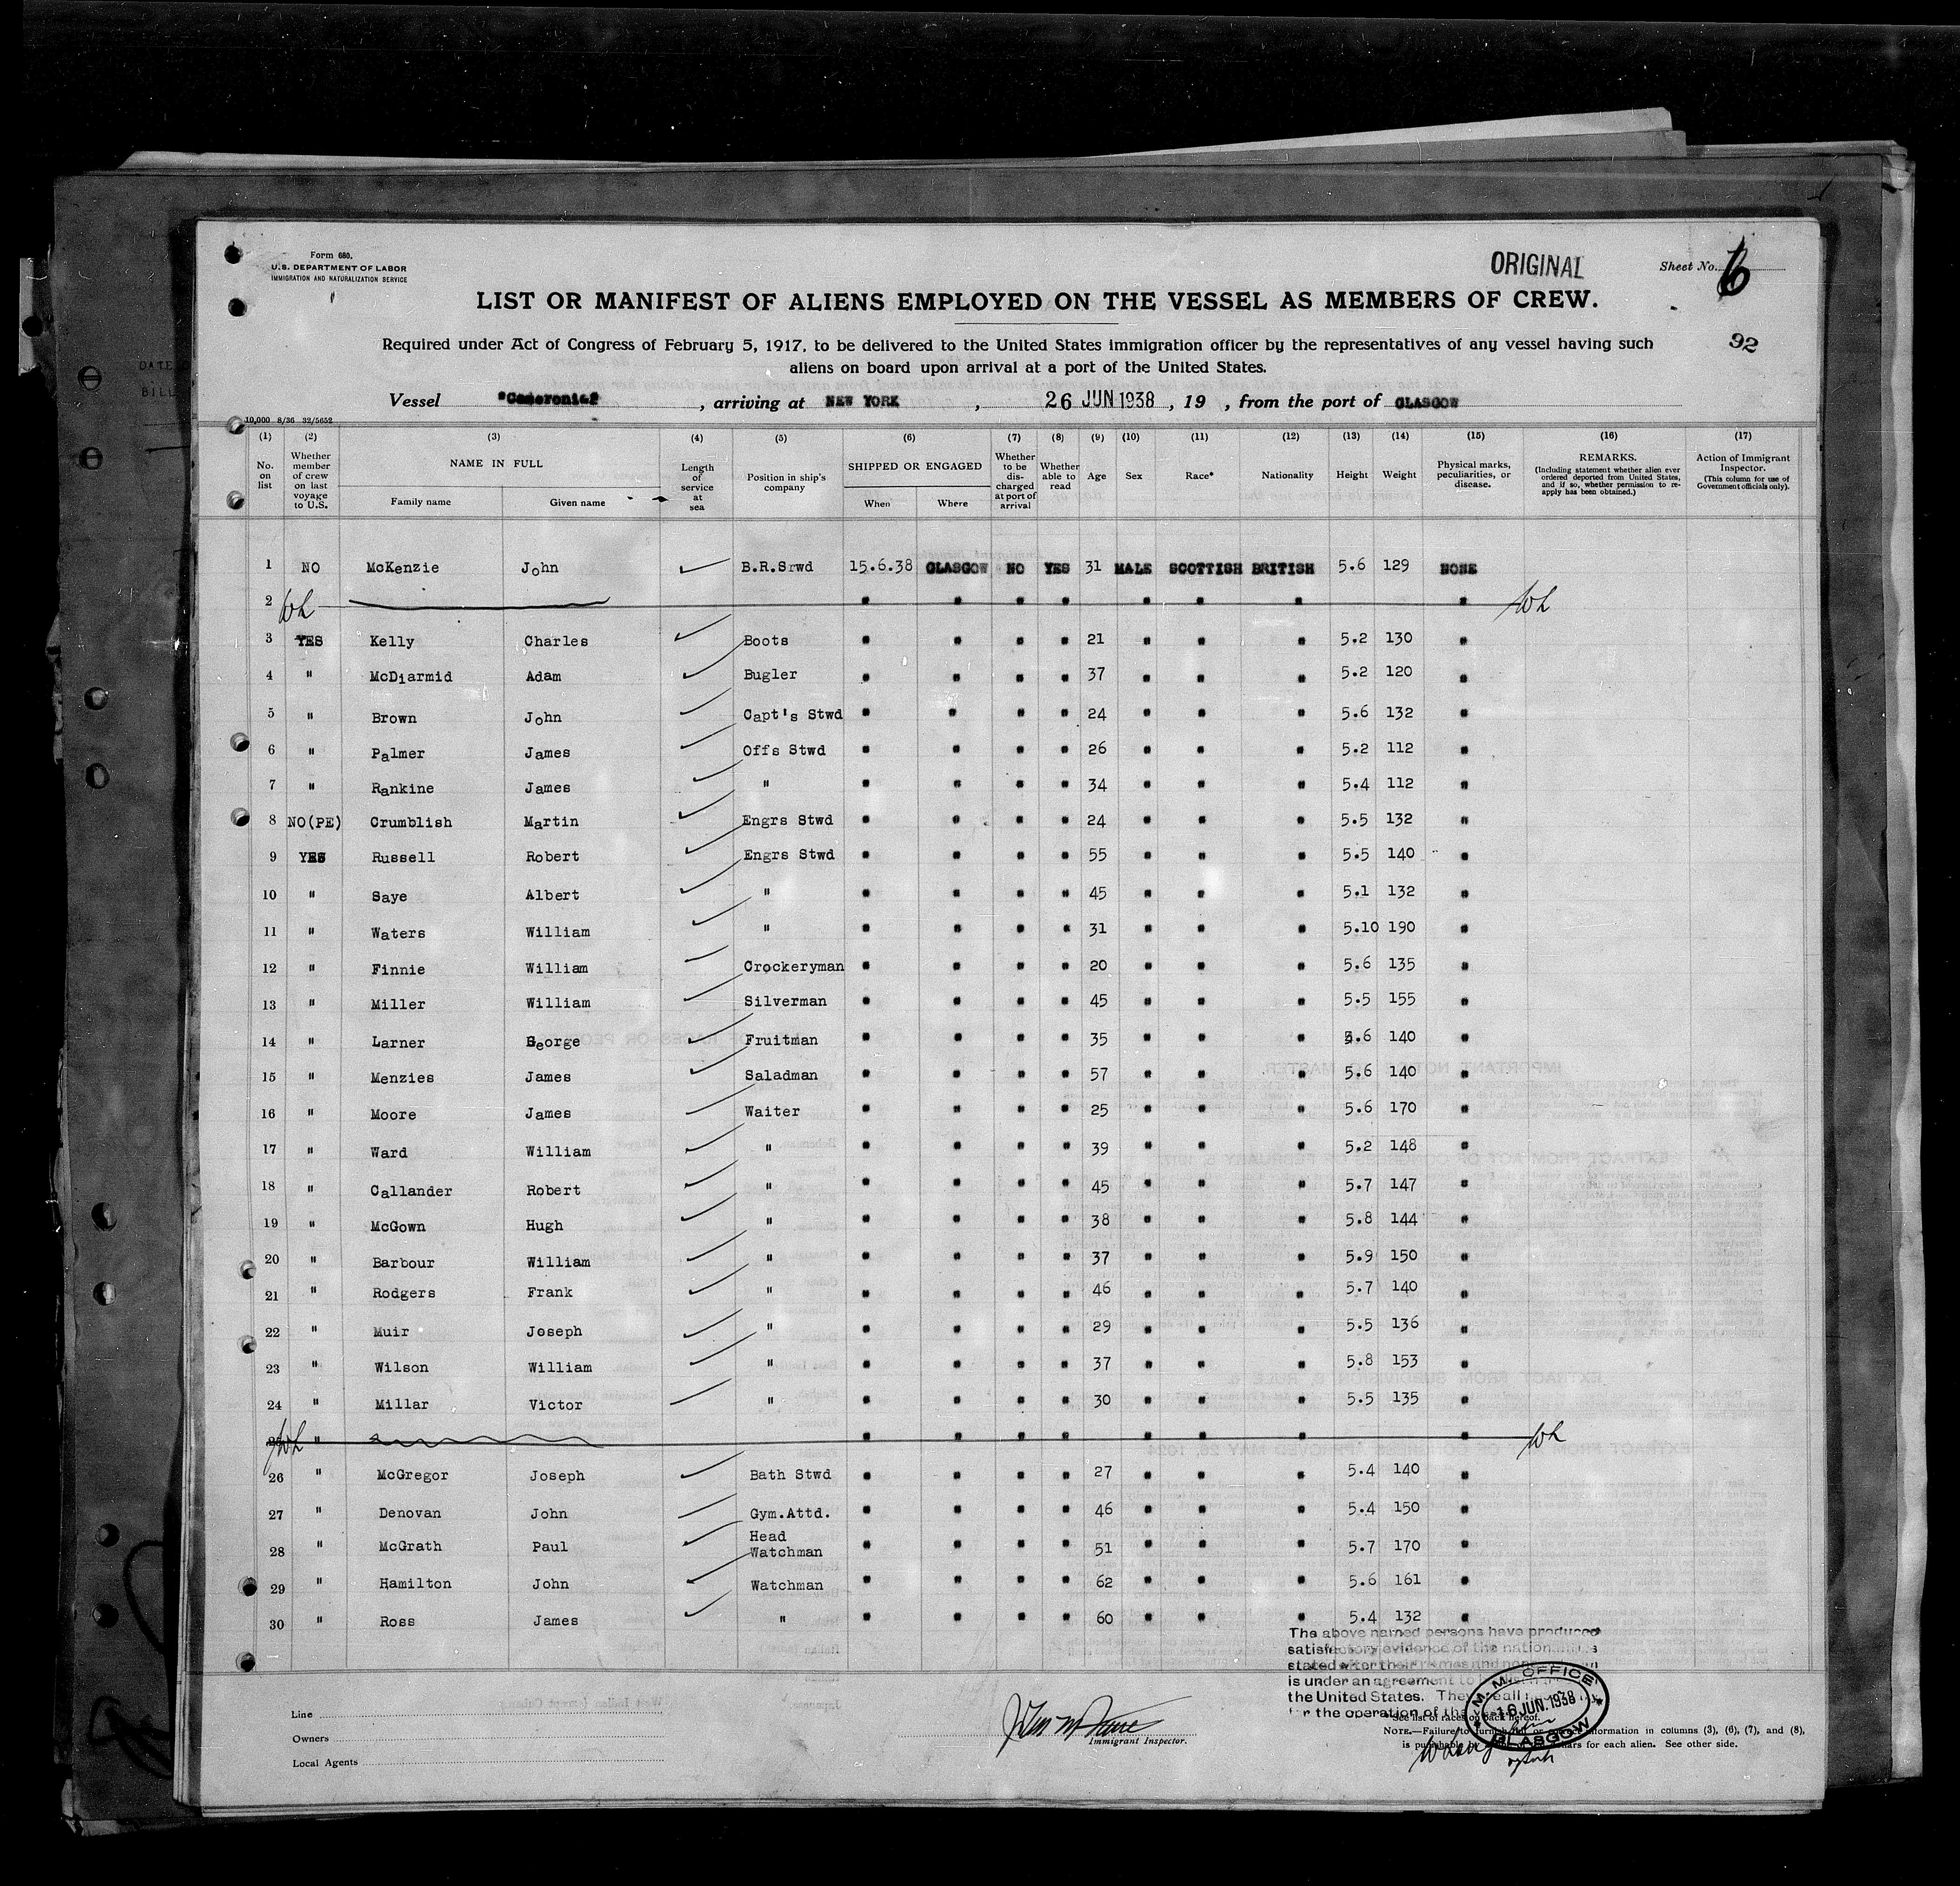 Form 680.
U.S. DEPARTMENT OF LABOR
IMMIGRATION AND NATURALIZATION SERVICE
ORIGINAL
Sheet No. 6
LIST OR MANIFEST OF ALIENS EMPLOYED ON THE VESSEL AS MEMBERS OF CREW.
92
Required under Act of Congress of February 5, 1917, to be delivered to the United States immigration officer by the representatives of any vessel having such
aliens on board upon arrival at a port of the United States.
Vessel "Cameronia" , arriving at NEW YORK , 26 JUN 1938 , 19 , from the port of GLASGOW
10,000 8/36 32/5652
(1) (2) (3) (4) (5) (6) (7) (8) (9) (10) (11) (12) (13) (14) (15) (16) (17)
No. on list
Whether member of crew on last voyage to U.S.
NAME IN FULL
Family name Given name
Length of service at sea
Position in ship's company
SHIPPED OR ENGAGED
When Where
Whether to be discharged at port of arrival
Whether able to read
Age
Sex
Race*
Nationality
Height
Weight
Physical marks, peculiarities, or disease.
REMARKS.
(Including statement whether alien ever ordered deported from United States, and if so, whether permission to reapply has been obtained.)
Action of Immigrant Inspector.
(This column for use of Government officials only).
1 NO McKenzie John B.R.Srwd 15.6.38 GLASGOW NO YES 31 MALE SCOTTISH BRITISH 5.6 129 NONE
2 " " " " " " " "
3 YES Kelly Charles Boots " " " " 21 " " " 5.2 130 "
4 " McDiarmid Adam Bugler " " " " 37 " " " 5.2 120 "
5 " Brown John Capt's Stwd " " " " 24 " " " 5.6 132 "
6 " Palmer James Offs Stwd " " " " 26 " " " 5.2 112 "
7 " Rankine James " " " " " 34 " " " 5.4 112 "
8 NO(PE) Crumblish Martin Engrs Stwd " " " " 24 " " " 5.5 132 "
9 YES Russell Robert Engrs Stwd " " " " 55 " " " 5.5 140 "
10 " Saye Albert " " " " " 45 " " " 5.1 132 "
11 " Waters William " " " " " 31 " " " 5.10 190 "
12 " Finnie William Crockeryman " " " " 20 " " " 5.6 135 "
13 " Miller William Silverman " " " " 45 " " " 5.5 155 "
14 " Larner George Fruitman " " " " 35 " " " 5.6 140 "
15 " Menzies James Saladman " " " " 57 " " " 5.6 140 "
16 " Moore James Waiter " " " " 25 " " " 5.6 170 "
17 " Ward William " " " " " 39 " " " 5.2 148 "
18 " Callander Robert " " " " " 45 " " " 5.7 147 "
19 " McGown Hugh " " " " " 38 " " " 5.8 144 "
20 " Barbour William " " " " " 37 " " " 5.9 150 "
21 " Rodgers Frank " " " " " 46 " " " 5.7 140 "
22 " Muir Joseph " " " " " 29 " " " 5.5 136 "
23 " Wilson William " " " " " 37 " " " 5.8 153 "
24 " Millar Victor " " " " " 30 " " " 5.5 135 "
25 " " " " " " " " "
26 " McGregor Joseph Bath Stwd " " " " 27 " " " 5.4 140 "
27 " Denovan John Gym.Attd. " " " " 46 " " " 5.4 150 "
28 " McGrath Paul Head Watchman " " " " 51 " " " 5.7 170 "
29 " Hamilton John Watchman " " " " 62 " " " 5.6 161 "
30 " Ross James " " " " " 60 " " " 5.4 132 "
The above named persons have produced
satisfactory evidence of the
stated after their names and
is under an agreement to
the United States. They
for the operation of the
M. M. OFFICE
16 JUN. 1938
GLASGOW
Line
Owners
Local Agents
Immigrant Inspector.
*See list of races on back hereof.
NOTE.—Failure to furnish full or correct information in columns (3), (6), (7), and (8),
is punishable by dollars for each alien. See other side.